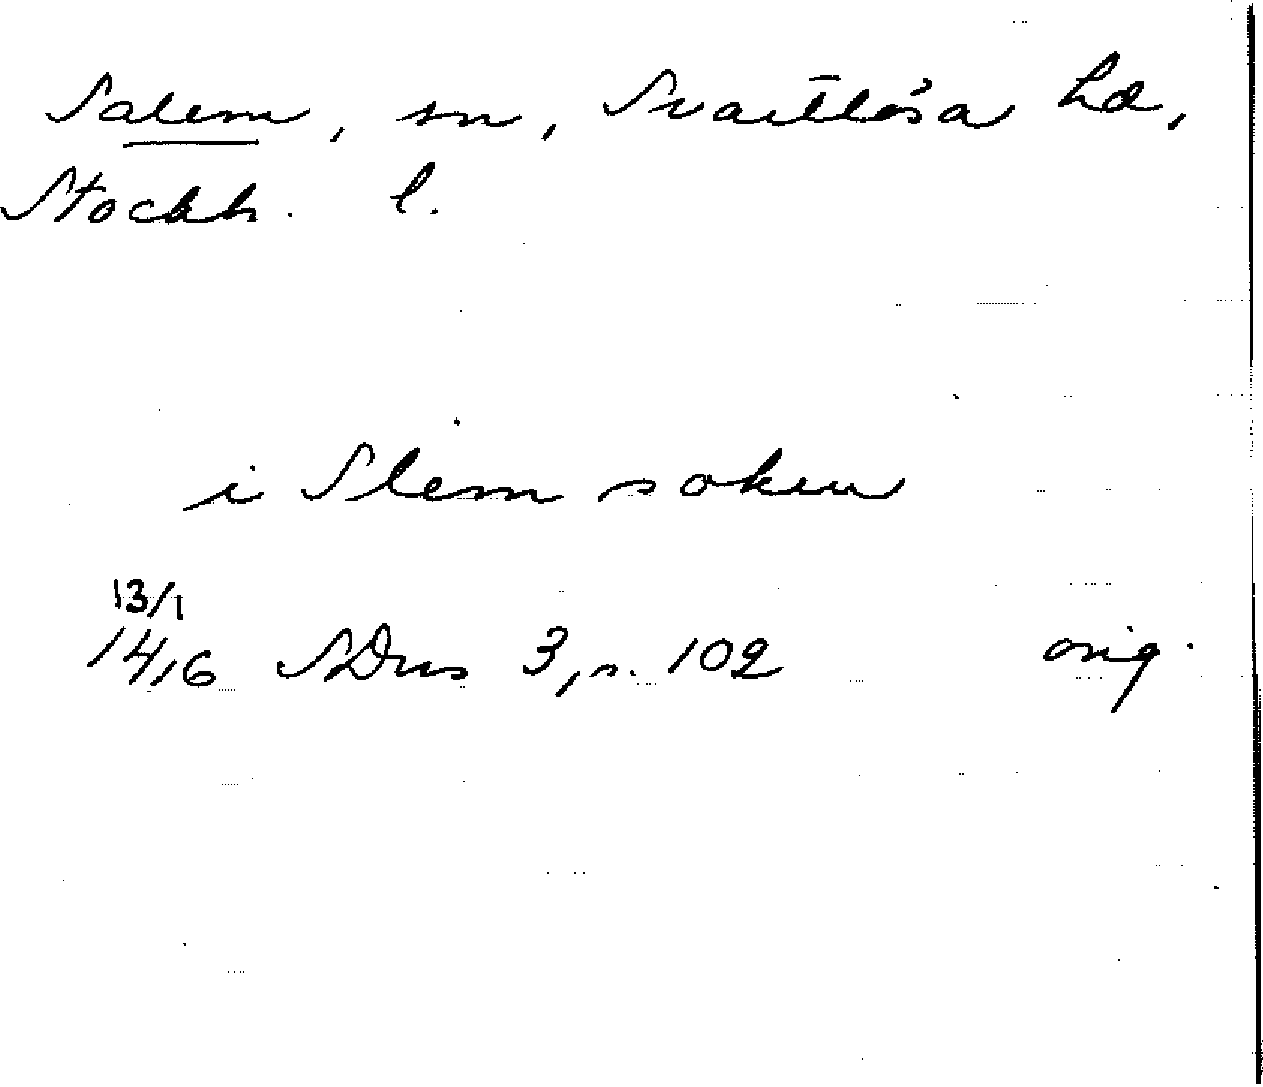 Salem, sn, Svartlösa hd,
Stockh. l.
i Slem soken
13/1
1416 SDns 3, s. 102 orig.